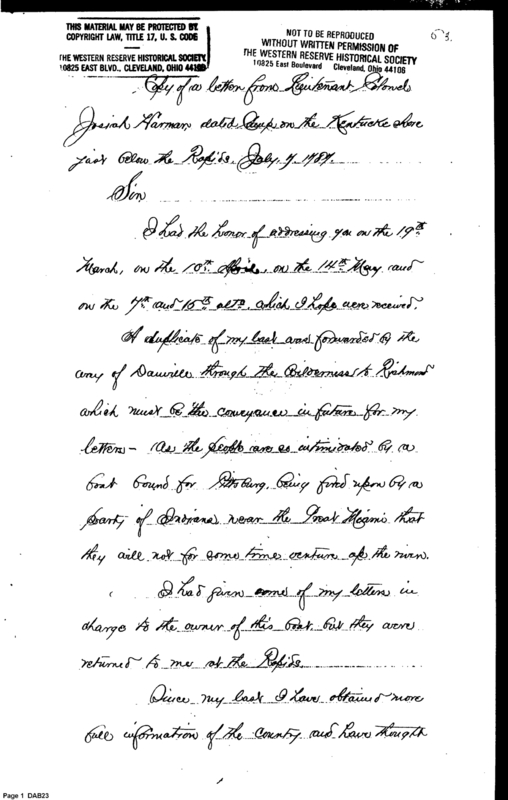 THIS MATERIAL MAY BE PROTECTED BY
COPYRIGHT LAW, TITLE 17, U. S. CODE
THE WESTERN RESERVE HISTORICAL SOCIETY
10825 EAST BLVD., CLEVELAND, OHIO 44106
NOT TO BE REPRODUCED
WITHOUT WRITTEN PERMISSION OF
THE WESTERN RESERVE HISTORICAL SOCIETY
10825 East Boulevard Cleveland, Ohio 44106
53.
Copy of a letter from Lieutenant Colonel
Josiah Harmar dated Camp on the Kentucke shore
just below the Rapids, July 7, 1787.
Sir
I had the honor of addressing you on the 19th
March, on the 10th April, on the 14th May and
on the 7th and 15th ulto. which I hope were received.
A duplicate of my last was forwarded by the
way of Danville through the Wilderness to Richmond
which must be the conveyance in future for my
letters - As the people are so intimidated by a
boat bound for Pittsburg, being fired upon by a
party of Indians near the Great Miami that
they will not for some time venture up the river.
I had given some of my letters in
charge to the owner of this boat but they were
returned to me at the Rapids.
Since my last I have obtained more
full information of the Country and have thought
Page 1 DAB23